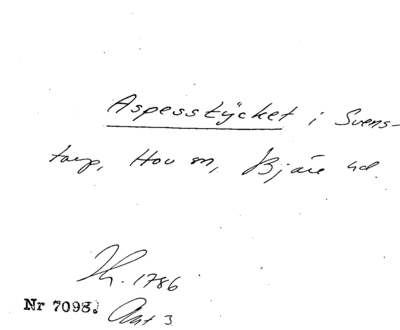 Aspesstycket i Svens-
torp, Hov sn, Bjäre hd.
Th. 1786
Nr 7098. Akt 3